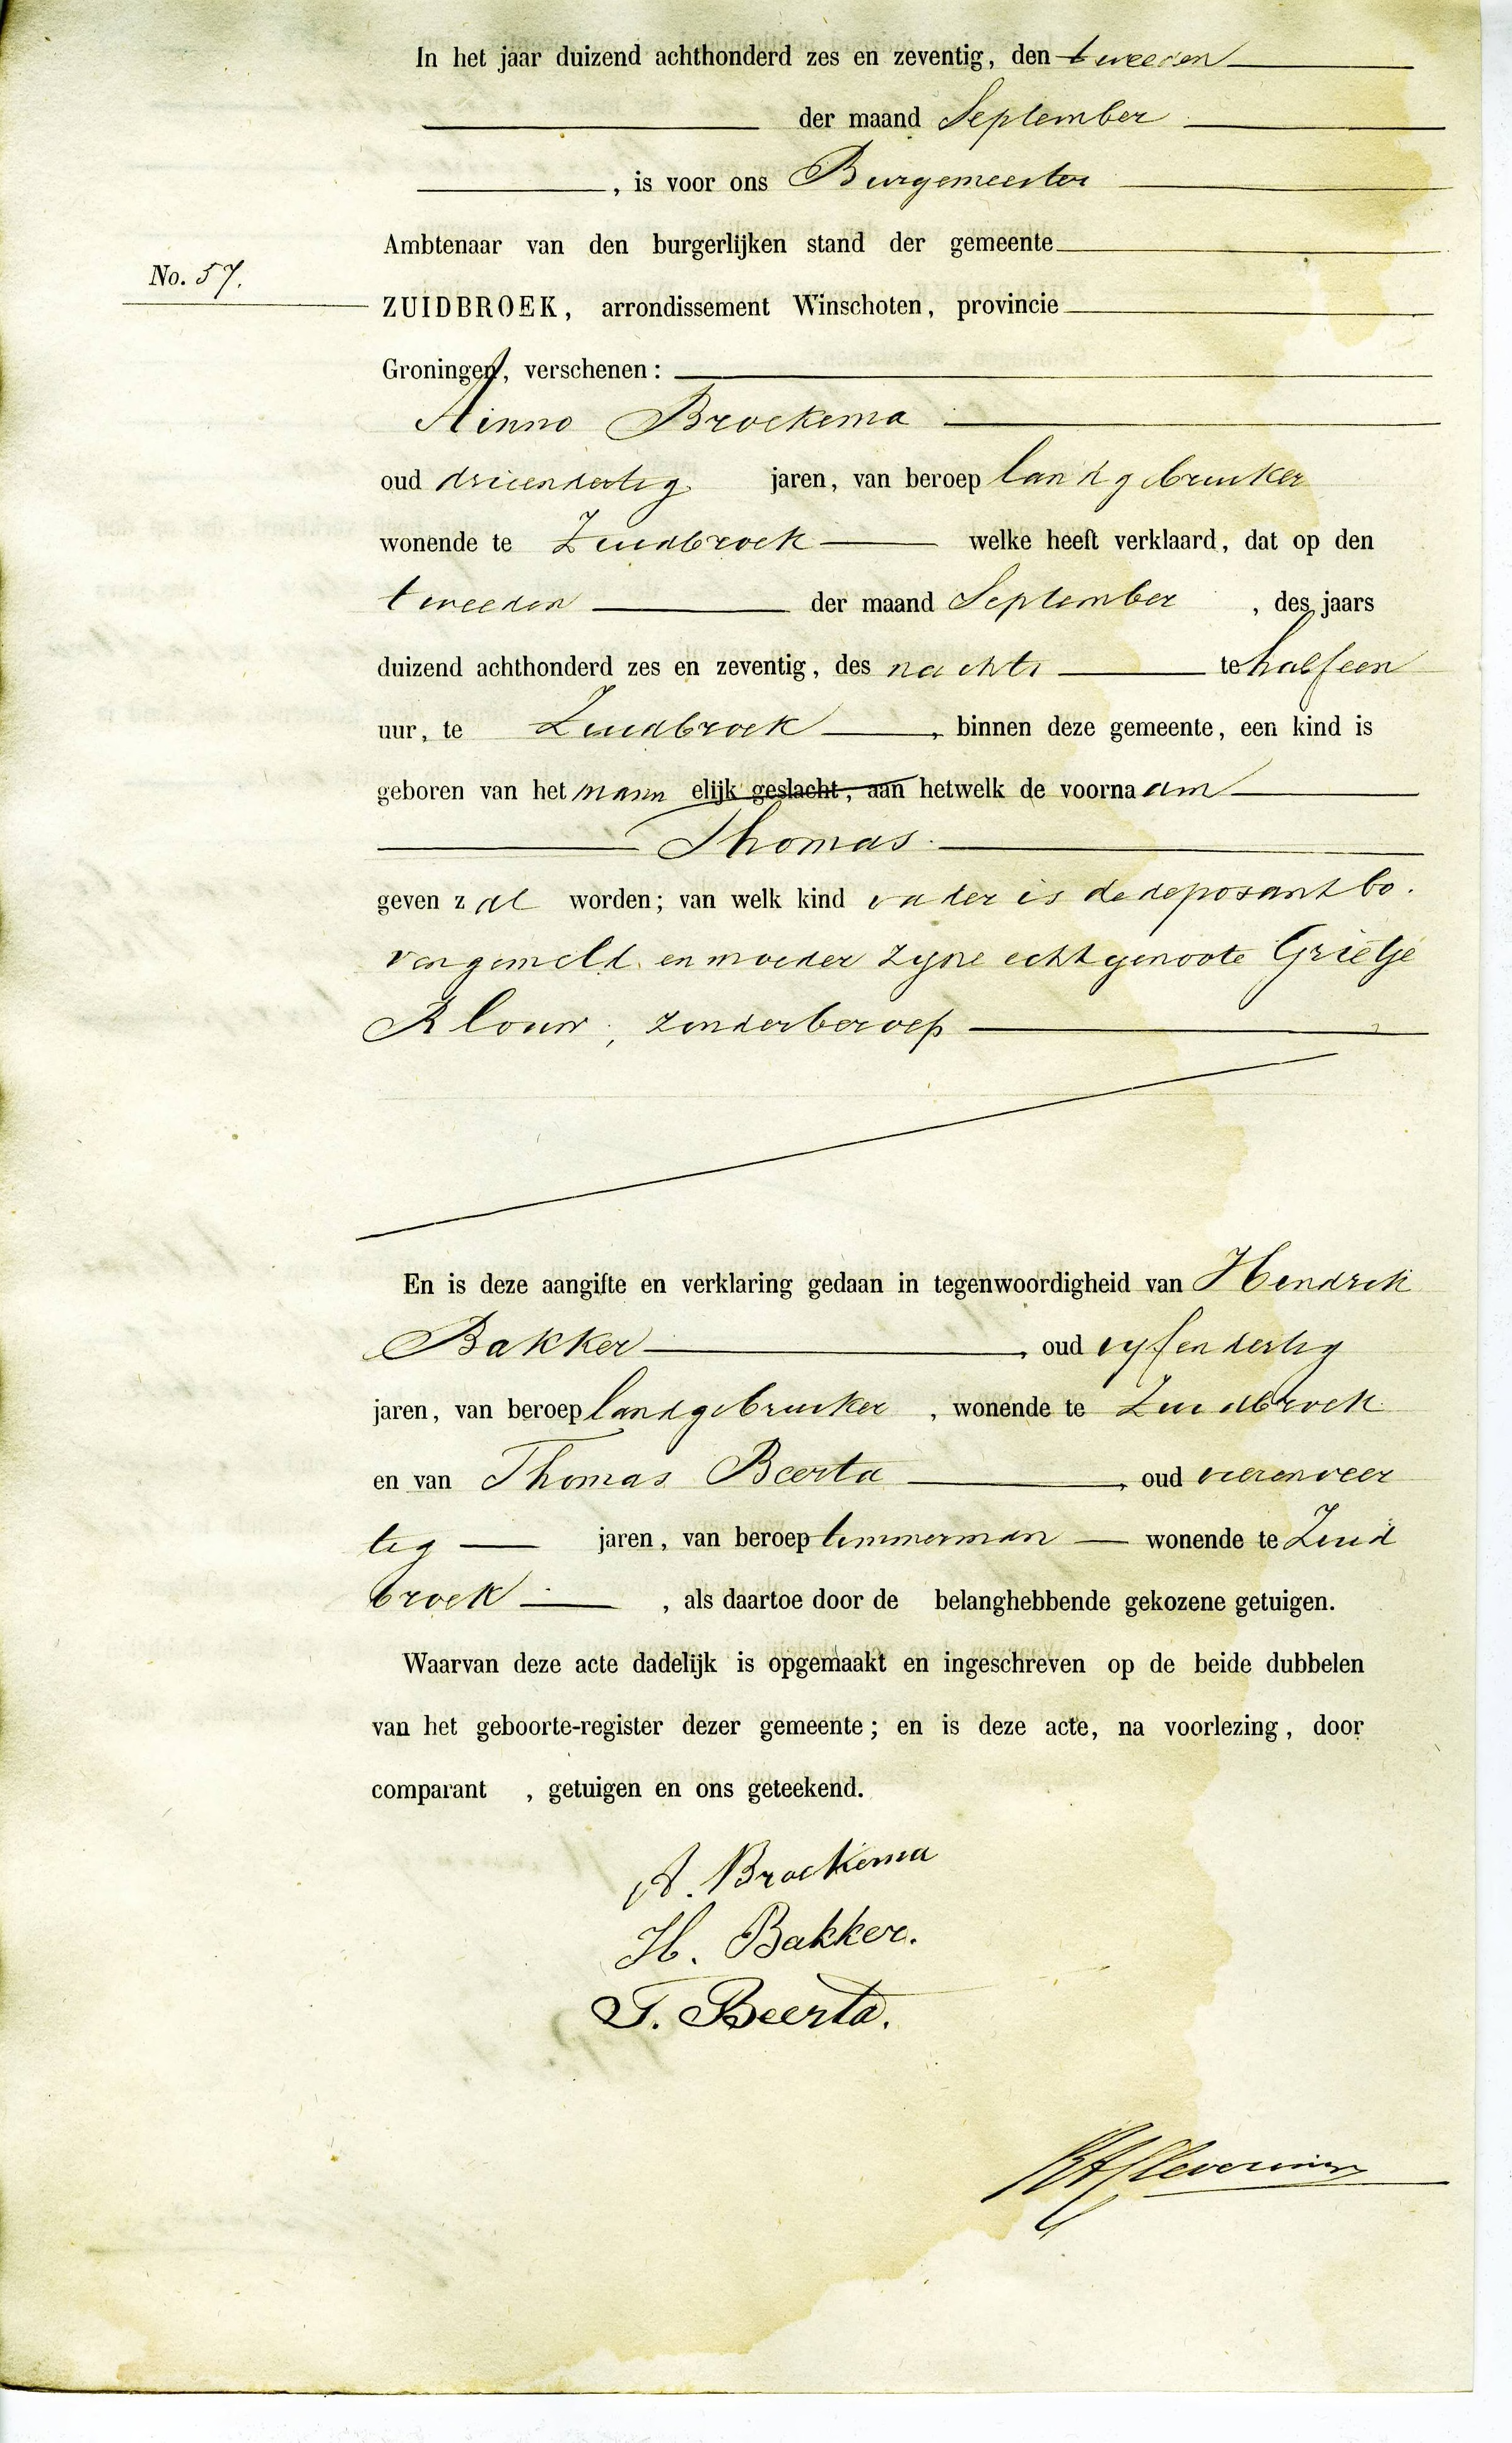 In het jaar duizend achthonderd zes en zeventig, den tweeden
der maand September
, is voor ons Burgemeester
Ambtenaar van den burgerlijken stand der gemeente
No. 57.
ZUIDBROEK, arrondissement Winschoten, provincie
Groningen, verschenen:
Ainno Broekema
oud drieendertig jaren, van beroep landgebruiker
wonende te Zuidbroek welke heeft verklaard, dat op den
tweeden der maand September, des jaars
duizend achthonderd zes en zeventig, des nachts te half een
uur, te Zuidbroek, binnen deze gemeente, een kind is
geboren van het mann elijk geslacht, aan hetwelk de voornaam
Thomas
geven zal worden; van welk kind vader is de deposant bo.
vengemeld en moeder zijne echtgenoote Grietje
Klouw, zonder beroep
En is deze aangifte en verklaring gedaan in tegenwoordigheid van Hendrik
Bakker, oud vijfendertig
jaren, van beroep landgebruiker, wonende te Zuidbroek
en van Thomas Beerta, oud vierenveer
tig jaren, van beroep timmerman wonende te Zuid
broek, als daartoe door de belanghebbende gekozene getuigen.
Waarvan deze acte dadelijk is opgemaakt en ingeschreven op de beide dubbelen
van het geboorte-register dezer gemeente; en is deze acte, na voorlezing, door
comparant , getuigen en ons geteekend.
A. Broekema
H. Bakker.
T. Beerta.